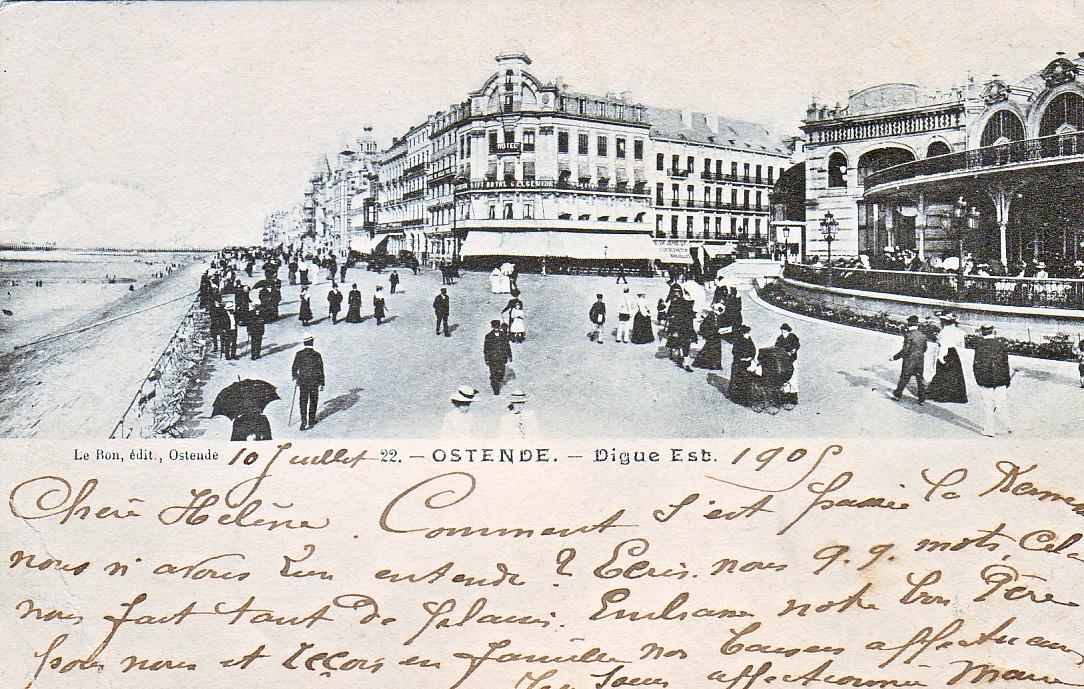 HOTEL
Le Bon, édit., Ostende 10 Juillet 22. — OSTENDE. — Digue Est. 1905
Chère Hélène. Comment s'est passée la
nous n' avons rien entendu ? Ecris. nous q.q. mots, Cela
nous fait tant de plaisir. Embrasse notre bon Père
pour nous et reçois en famille nos baisers affectueux
Ta Soeur affectionnée